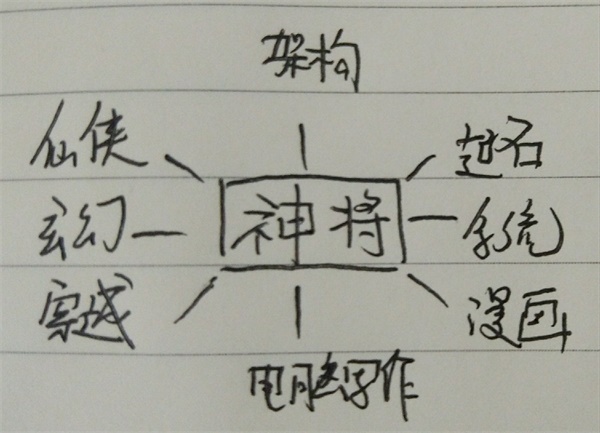 架构
仙侠
起名
玄幻
神将
系统
穿越
漫画
电脑写作